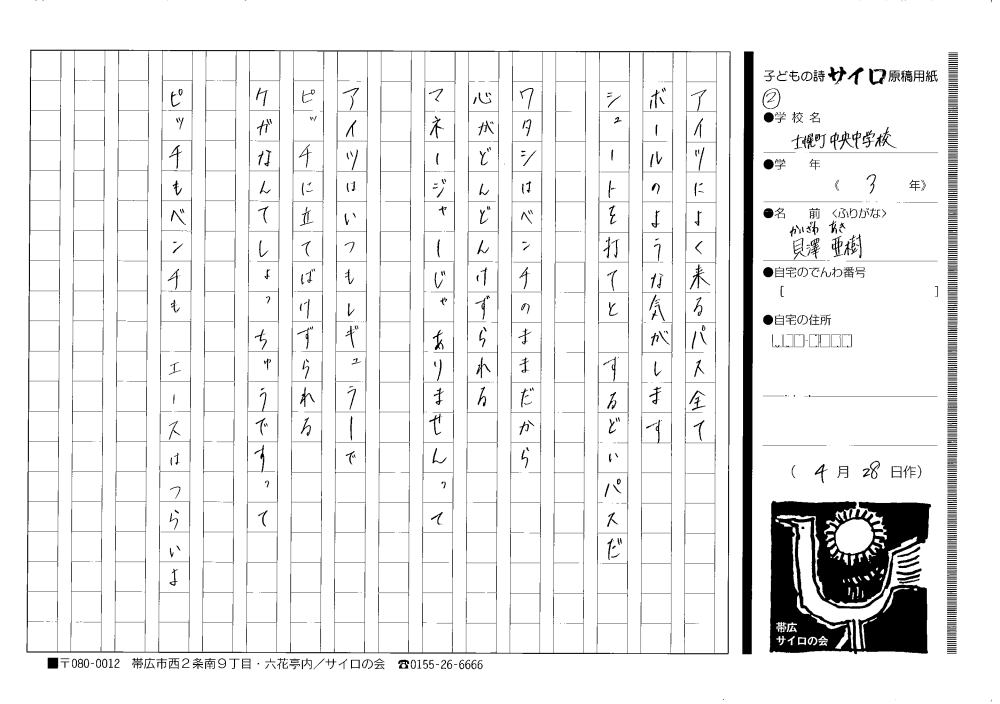 子どもの詩サイロ原稿用紙
②
●学校名
士幌町中央中学校
●学 年
《 3 年》
●名 前〈ふりがな〉
かいざわ あき
貝澤 亜樹
●自宅のでんわ番号
[ ]
●自宅の住所
( 4月28日作)
帯広
サイロの会
アイツによく来るパス全て
ボールのような気がします
シュートを打てと するどいパスだ
ワタシはベンチのままだから
心がどんどんけずられる
マネージャーじゃありませんって
アイツはいつもレギュラーで
ピッチに立てばけずられる
ケガなんてしょっちゅうですって
ピッチもベンチも エースはつらいよ
■〒080-0012 帯広市西2条南9丁目・六花亭内/サイロの会 ☎0155-26-6666